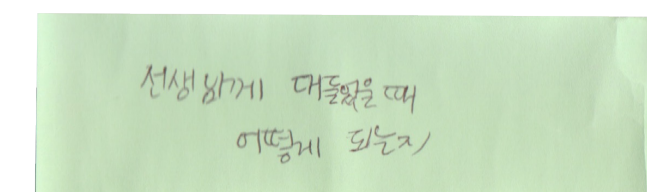 선생밖게 대들었을 때
어떻게 되는지